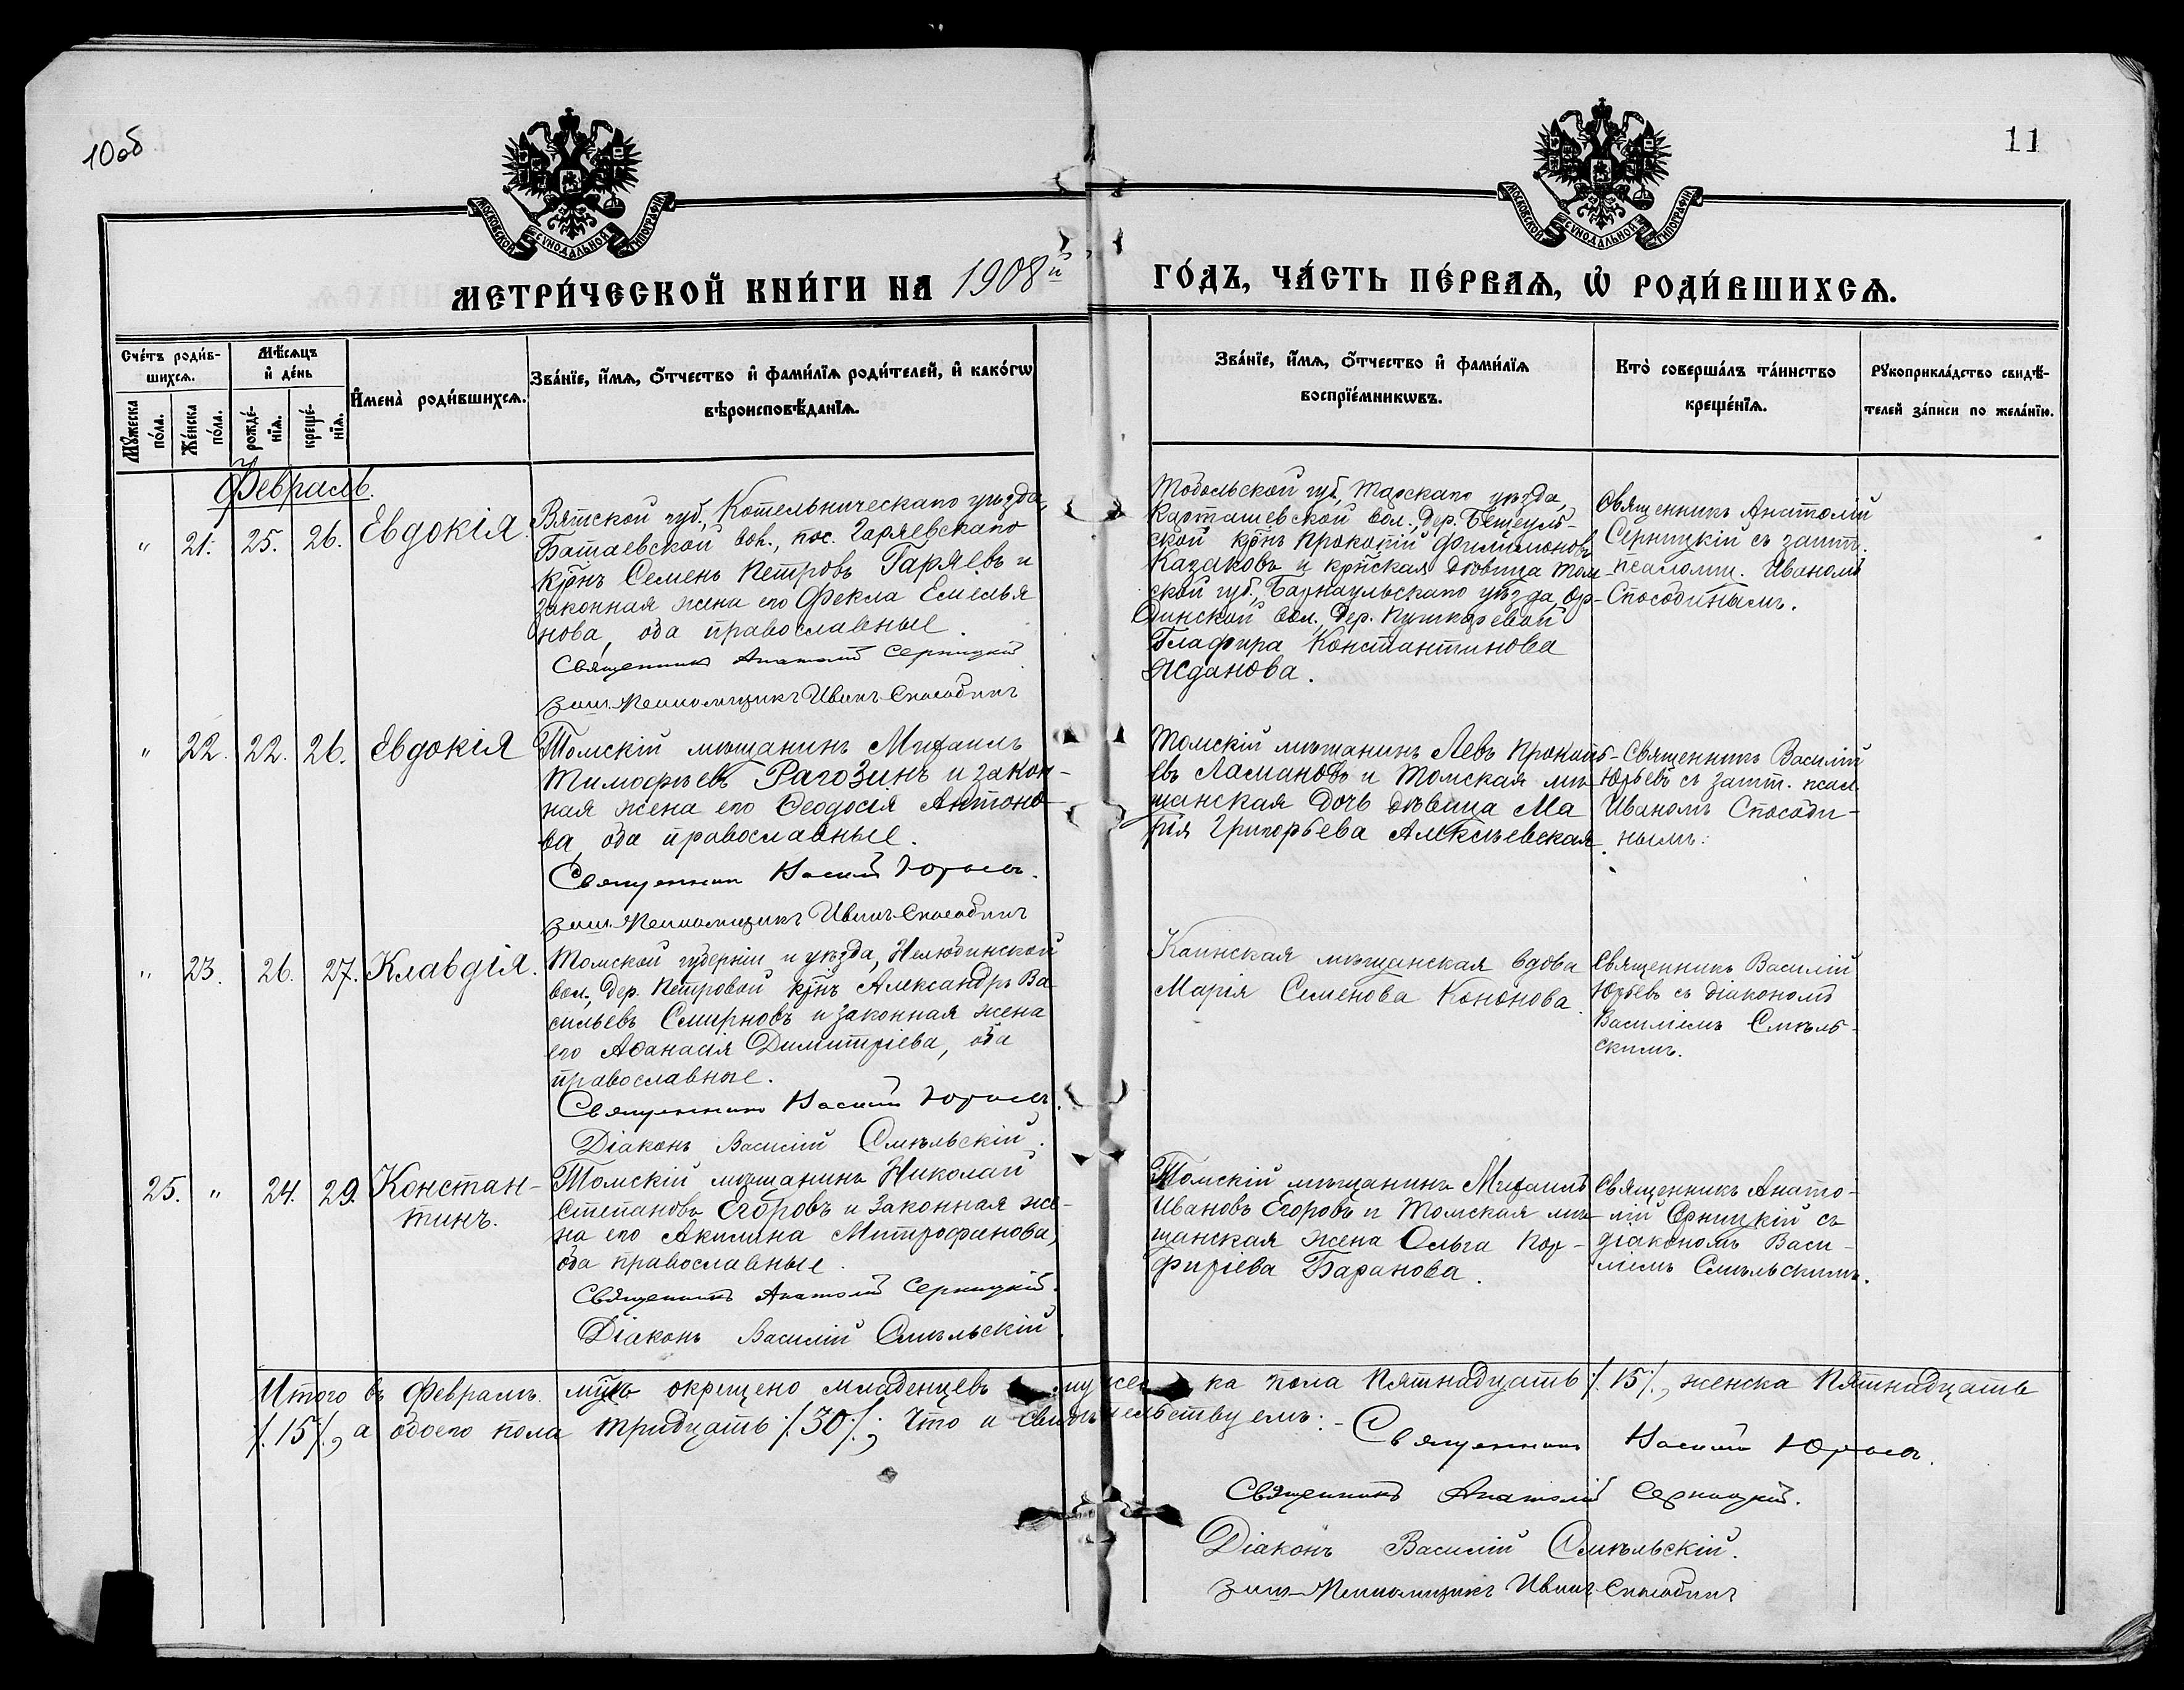 10об
11
МОСКОВСКОЙ СѴНОДАЛЬНОЙ ТИПОГРАФІИ
МОСКОВСКОЙ СѴНОДАЛЬНОЙ ТИПОГРАФІИ
МЕТРИ́ЧЕСКОЙ КНИ́ГИ НА 1908й
ГО́ДЪ, ЧА́СТЬ ПЕ́РВАѦ, Ѡ҆ РОДИ́ВШИХСѦ.
Сче́тъ роди́в-
шихсѧ.
Мѣ́сѧцъ
и҆ де́нь
И҆мена̀ роди́вшихсѧ.
Зва́нїе, и҆́мѧ, ѻ҆́тчество и҆ фами́лїѧ роди́телей, и҆ како́гѡ
вѣроисповѣ́данїѧ.
Мꙋ́жеска
по́ла.
Же́нска
по́ла.
рожде́-
нїѧ.
креще́-
нїѧ.
Зва́нїе, и҆́мѧ, ѻ҆́тчество и҆ фами́лїѧ
воспрїе́мникѡвъ.
Кто̀ соверша́лъ та́инство
креще́нїѧ.
Рꙋкоприкла́дство свидѣ́-
телей за́писи по жела́нїю.
Февраль.
" 21. 25. 26. Евдокія.
Вятской губ., Котельническаго уѣзда,
Баташевской вол., пос. Гаряевскаго
крнъ Семенъ Петровъ Гаряевъ и
законная жена его Фекла Емелья
нова, оба православные.
Священникъ Анатолій Серницкій
зашт. Псаломщикъ Иванъ Способинъ
Тобольской губ., Тарскаго уѣзда,
Карташевской вол., дер.
ской крнъ Прокопій Филимоновъ
Казаковъ и крнская дѣвица Том-
ской губ., Барнаульскаго уѣзда, Ор-
динской вол., дер. Пушкаревой
Глафира Константинова
Жданова.
Священникъ Анатолій
Серницкій съ зашт.
псаломщ. Иваномъ
Способинымъ.
" 22. 22. 26. Евдокія
Томскій мѣщанинъ Михаилъ
Тимофѣевъ Рагозинъ и закон-
ная жена его Ѳеодосія Антоно-
ва, оба православные.
Священникъ Василій Юрьевъ.
зашт. Псаломщикъ Иванъ Способинъ
Томскій мѣщанинъ Левъ Прокопь-
евъ Ласмановъ и Томская мѣ-
щанская дочь дѣвица Ма
рія Григорьева Алексѣевская.
Священникъ Василій
Юрьевъ съ зашт. псал.
Иваномъ Способи-
нымъ.
" 23. 26. 27. Клавдія.
Томской губерніи и уѣзда, Нелюбинской
вол., дер. Петровой крнъ Александръ Ва
сильевъ Смирновъ и законная жена
его Аѳанасія Димитріева, оба
православные.
Священникъ Василій Юрьевъ.
Діаконъ Василій Смѣльскій.
Каинская мѣщанская вдова
Марія Семенова Кононова.
Священникъ Василій
Юрьевъ съ діакономъ
Василіемъ Смѣль-
скимъ.
25. " 24. 29. Констан-
тинъ.
Томскій мѣщанинъ Николай
Степановъ Егоровъ и законная же-
на его Акилина Митрофанова,
оба православные.
Священникъ Анатолій Серницкій.
Діаконъ Василій Смѣльскій.
Томскій мѣщанинъ Михаилъ
Ивановъ Егоровъ и Томская мѣ-
щанская жена Ольга Пор-
фиріева Баранова.
Священникъ Анато-
лій Серницкій съ
діакономъ Васи-
ліемъ Смѣльскимъ.
Итого въ Февралѣ мцѣ окрещено младенцевъ мужеска пола Пятнадцать ⁒ 15 ⁒, женска Пятнадцать
⁒ 15 ⁒, а обоего пола Тридцать ⁒ 30 ⁒; Что и свидѣтельствуемъ: -
Священникъ Василій Юрьевъ.
Священникъ Анатолій Серницкій.
Діаконъ Василій Смѣльскій.
зашт. Псаломщикъ Иванъ Способинъ